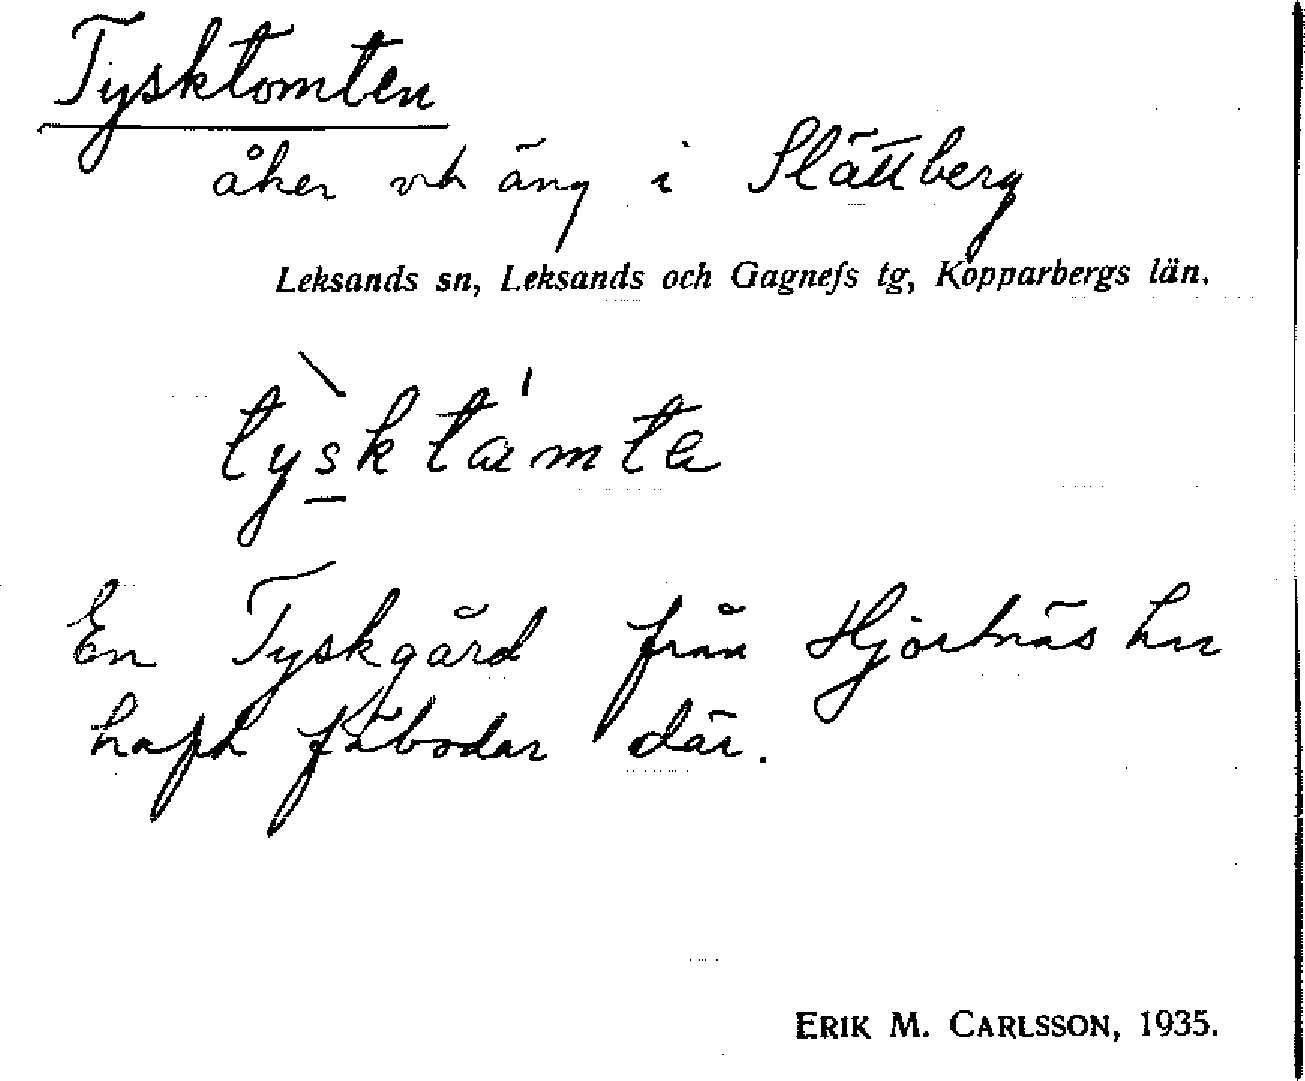 Tysktomten
åker och äng i Slättberg
Leksands sn, Leksands och Gagnefs tg, Kopparbergs län.
tỳsktámta
En Tyskgård från Hjortnäs har
haft fäbodar där.
ERIK M. CARLSSON, 1935.